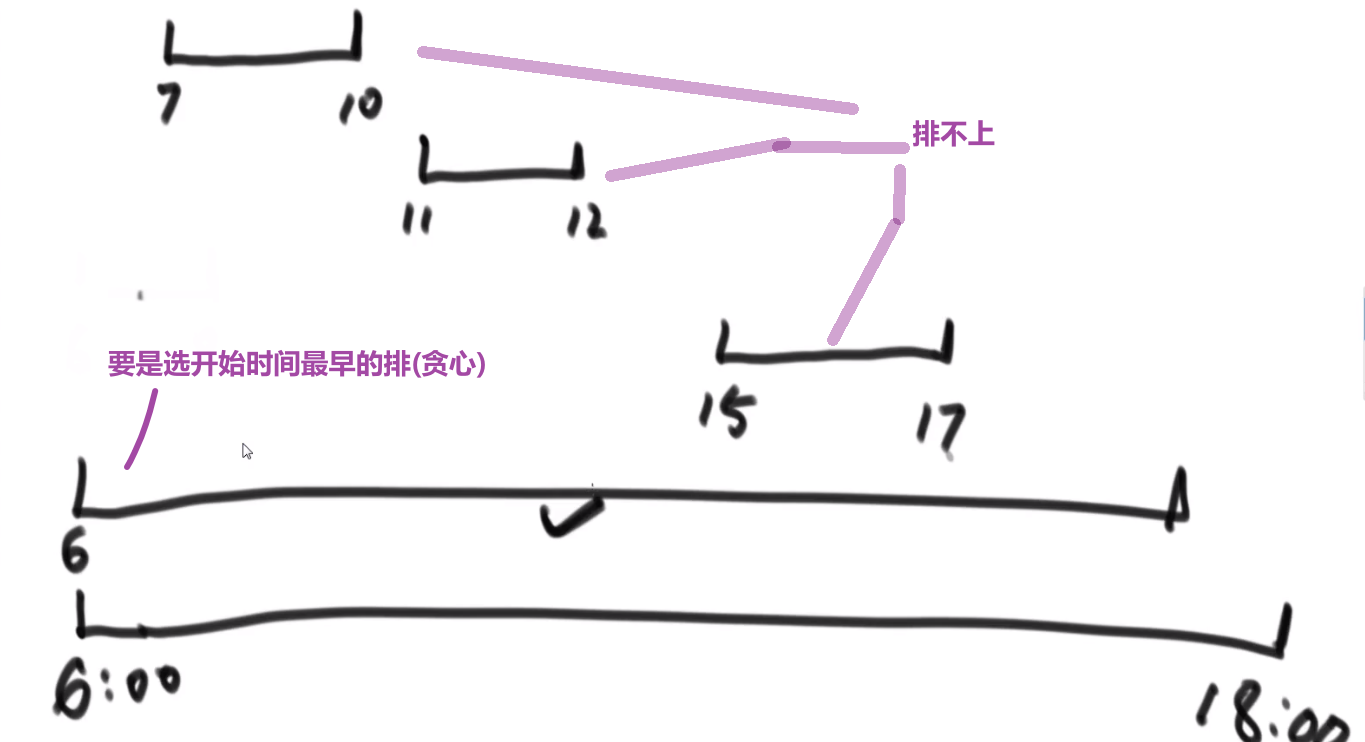 7 10
排不上
11 12
要是选开始时间最早的排(贪心)
15 17
6
6:00 18:00